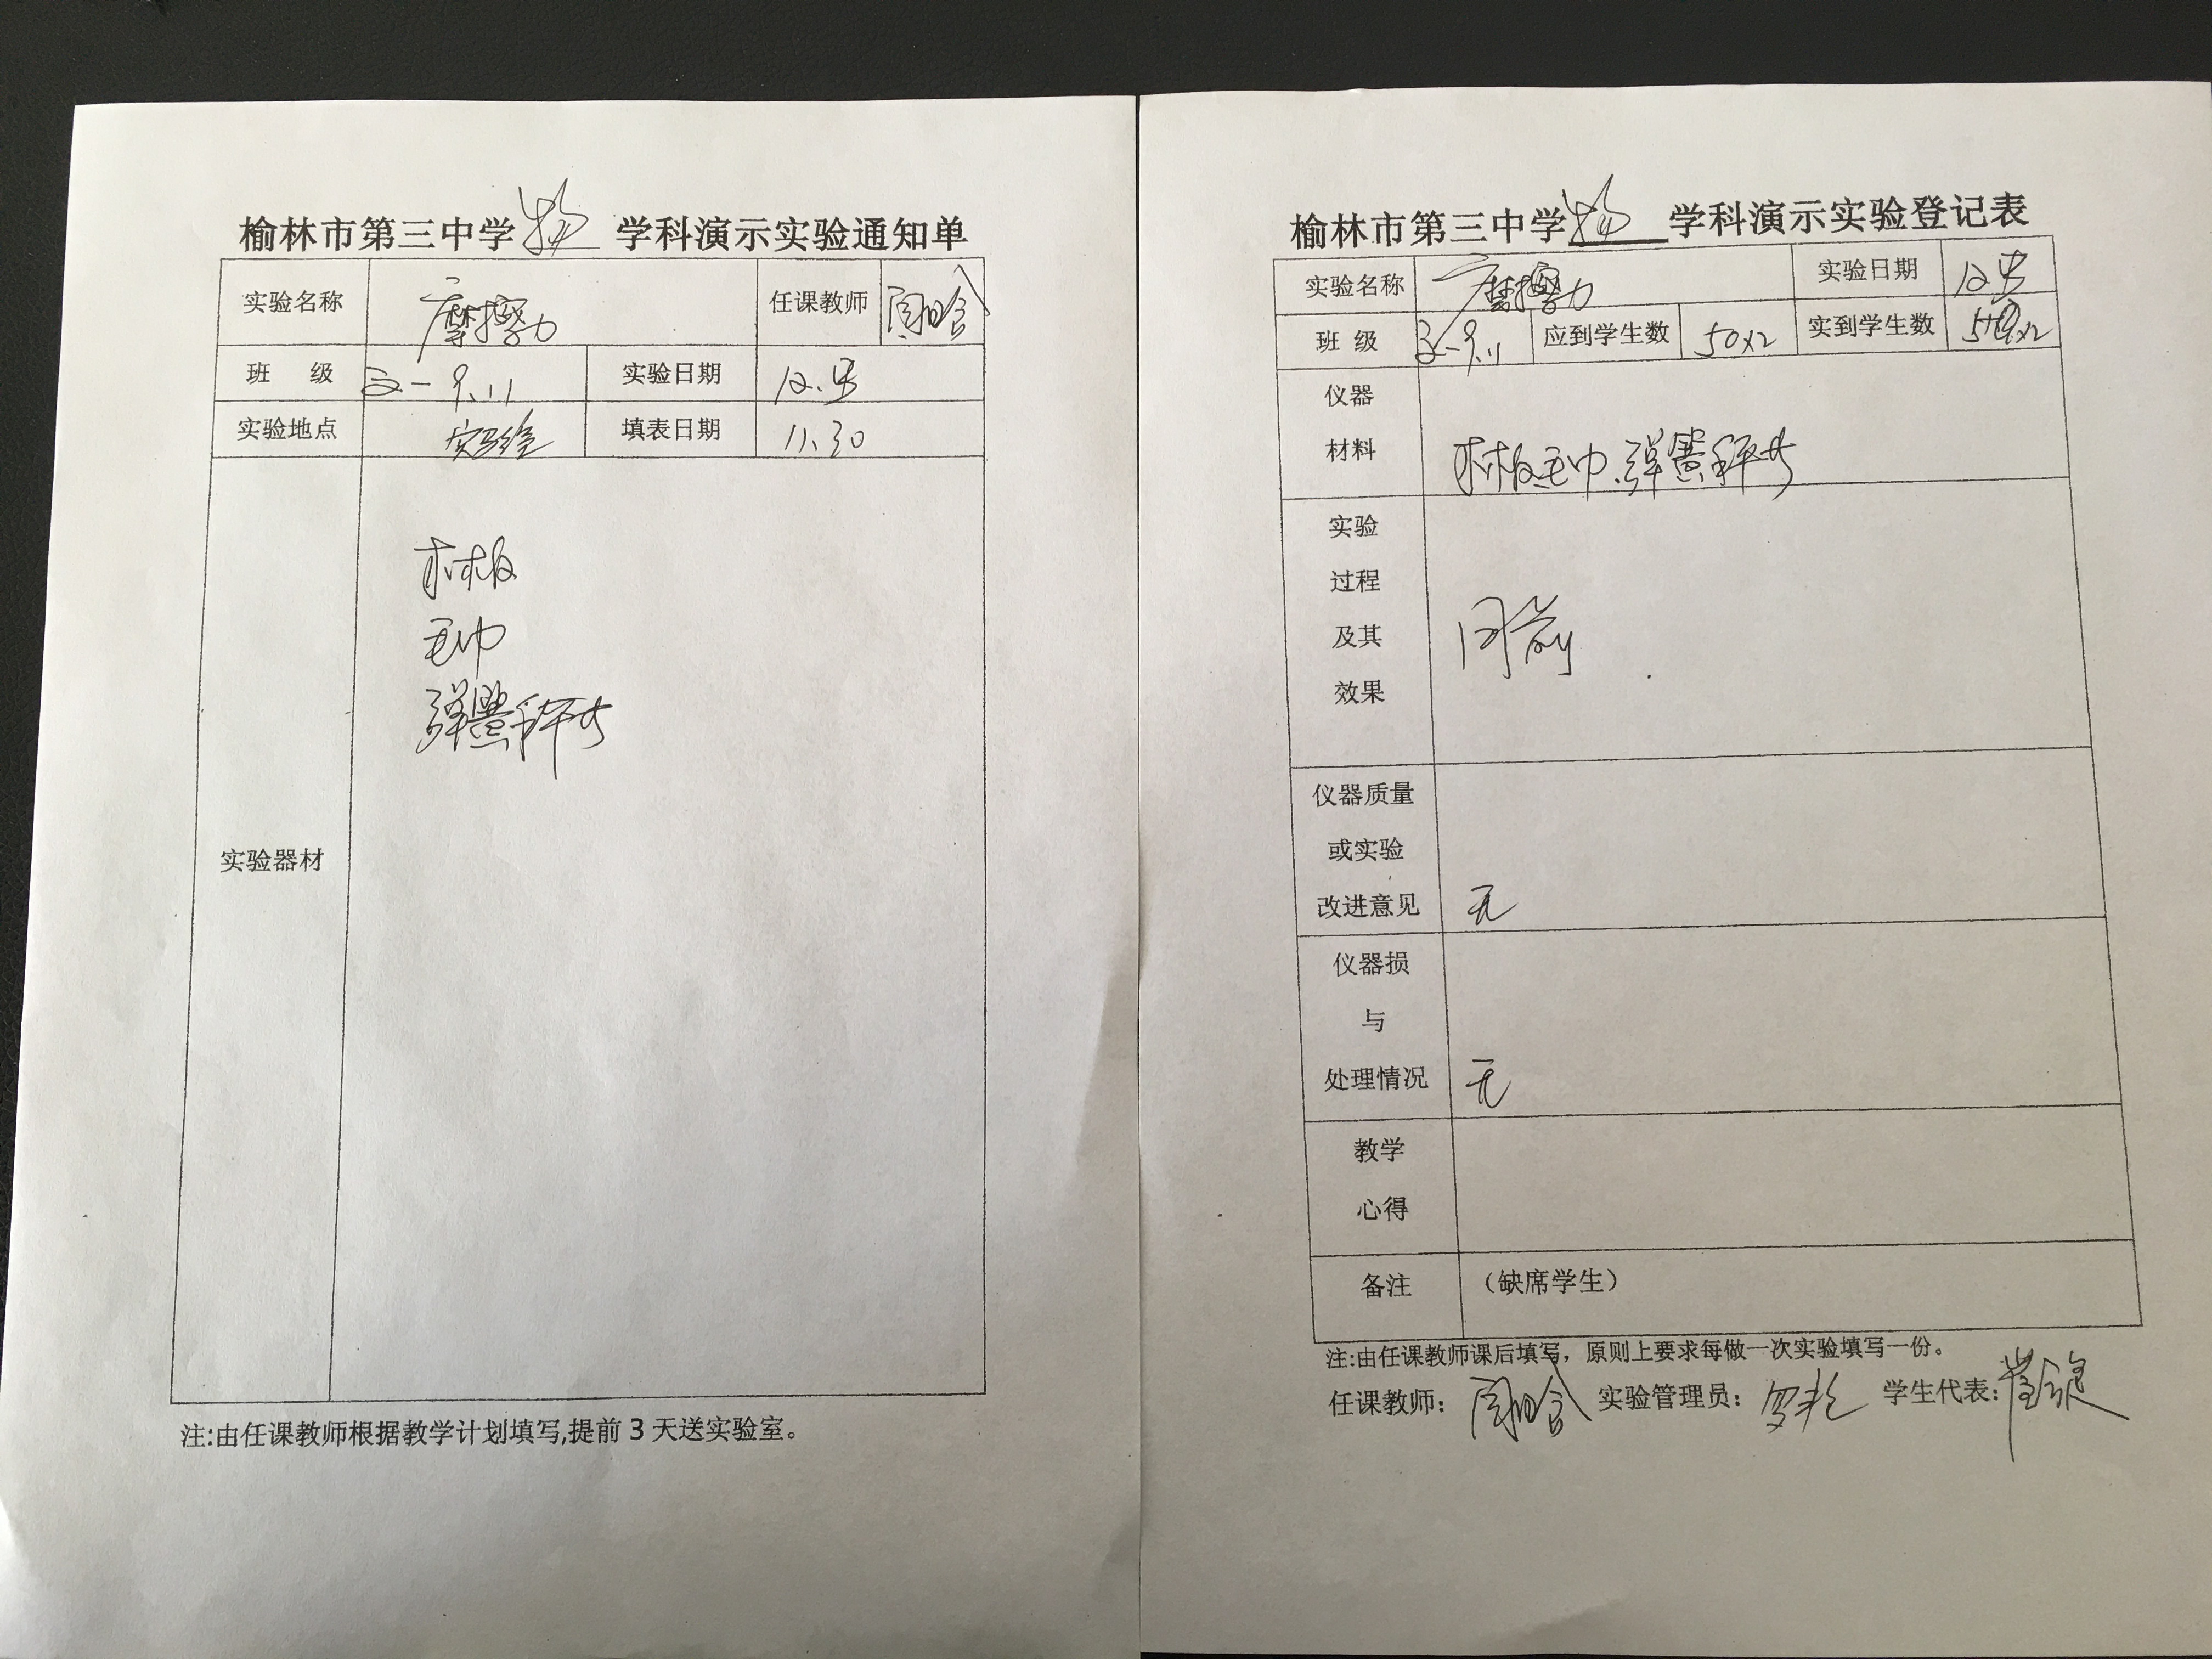 榆林市第三中学 物 学科演示实验通知单
实验名称 摩擦力 任课教师
班 级 高一 9.11 实验日期
实验地点 实验室 填表日期 11.30
实验器材
木板
毛巾
弹簧秤
注:由任课教师根据教学计划填写,提前3天送实验室。
榆林市第三中学 物 学科演示实验登记表
实验名称 摩擦力 实验日期
班 级 高一 9.11 应到学生数 50×2 实到学生数
仪器
材料 木板 毛巾.弹簧秤
实验
过程
及其 同前
效果
仪器质量
或实验
改进意见 无
仪器损
与
处理情况 无
教学
心得
备注 (缺席学生)
注:由任课教师课后填写，原则上要求每做一次实验填写一份。
任课教师: 实验管理员: 学生代表: